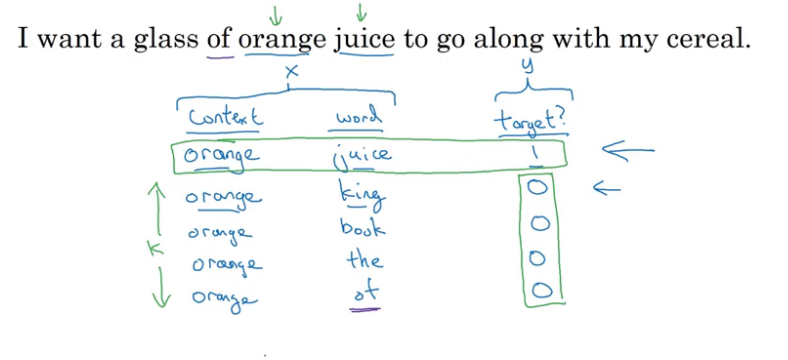 I want a glass of orange juice to go along with my cereal.
x y
Context word target?
orange juice 1
orange king 0
orange book 0
k
orange the 0
orange of 0